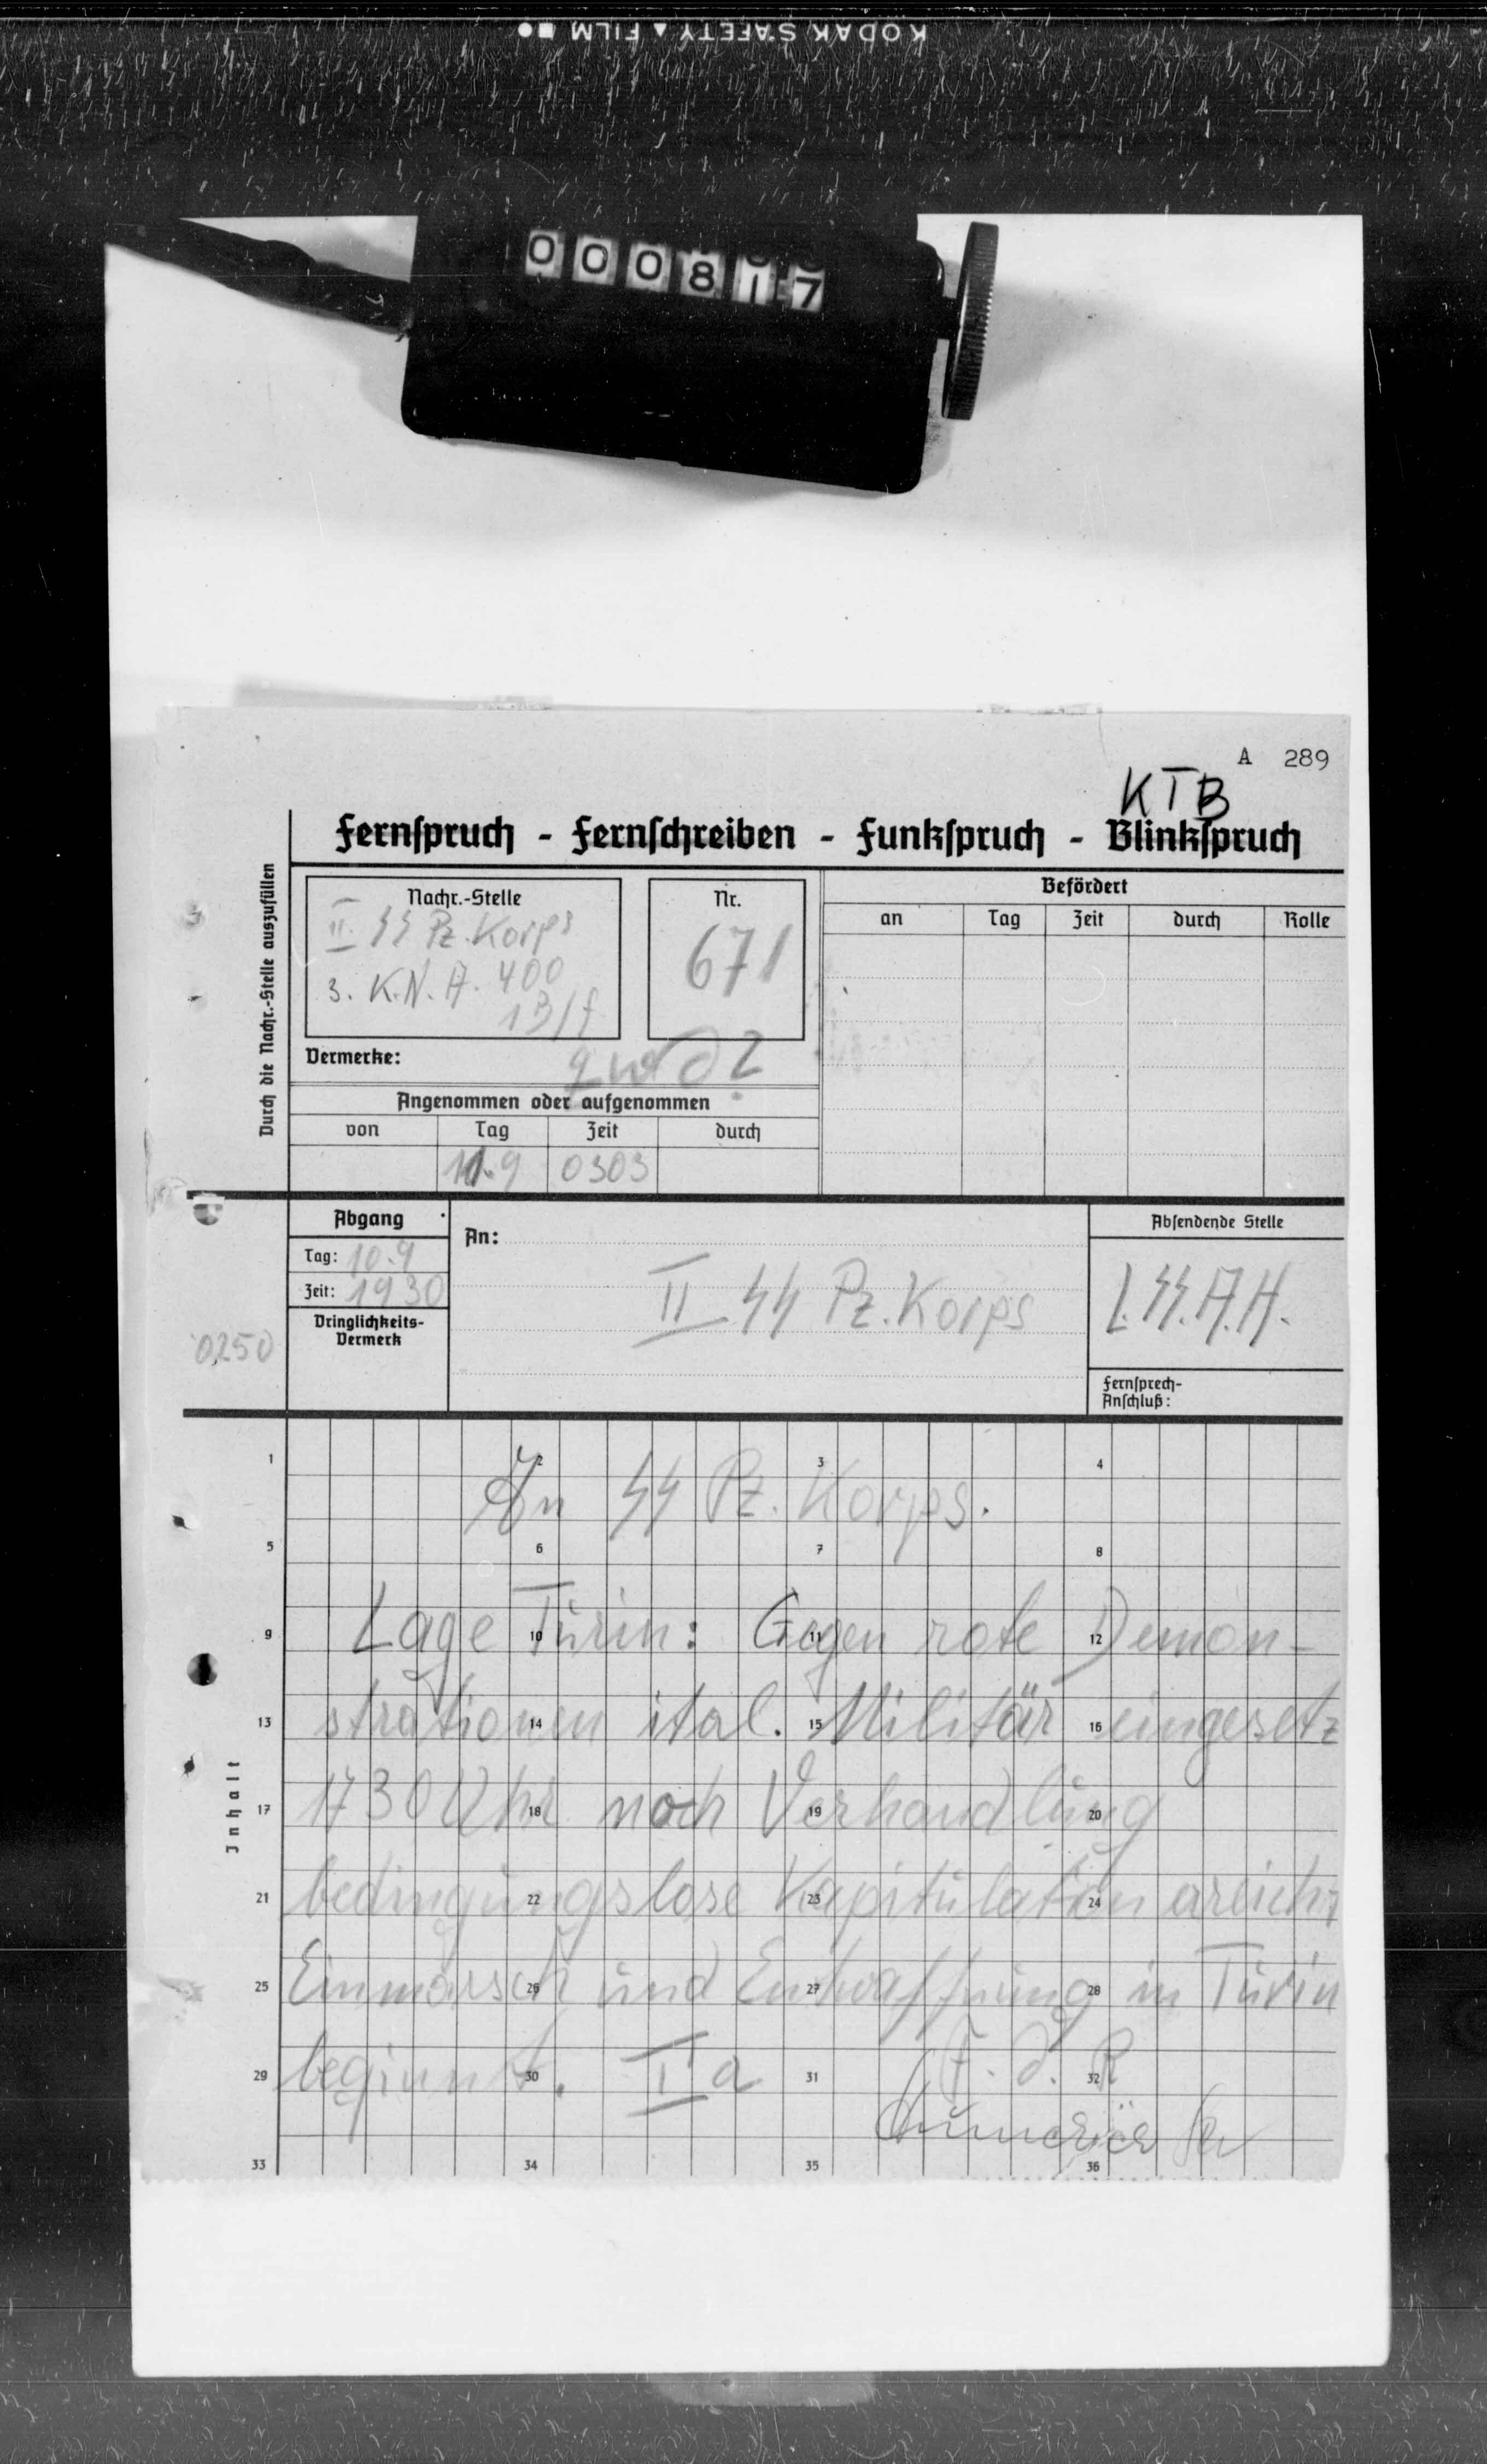 KODAK SAFETY ▲ FILM
000817
A 289
KTB
Fernspruch - Fernschreiben - Funkspruch - Blinkspruch
Durch die Nachr.-Stelle auszufüllen
Nachr.-Stelle
II. SS Pz. Korps
3. K.N.A. 400
Nr.
671
Befördert
an Tag Zeit durch Rolle
Vermerke:
Angenommen oder aufgenommen
von Tag Zeit durch
11.9 0303
Abgang
Tag: 10.9
Zeit: 1930
Dringlichkeits-
Vermerk
0250
An:
II SS Pz. Korps
Absendende Stelle
L.SS.A.H.
Fernsprech-
Anschluß:
Inhalt
1 2 3 4
An SS Pz. Korps.
5 6 7 8
Lage Turin: Gegen rote Demon-
9 10 11 12
strationen ital. Militär eingesetz
13 14 15 16
1730 Uhr noch Verhandlung
17 18 19 20
bedingungslose Kapitulation
21 22 23 24
Einmarsch und Entwaffnung in Turin
25 26 27 28
beginnt. Ia F.d.R
29 30 31 32
33 34 35 36